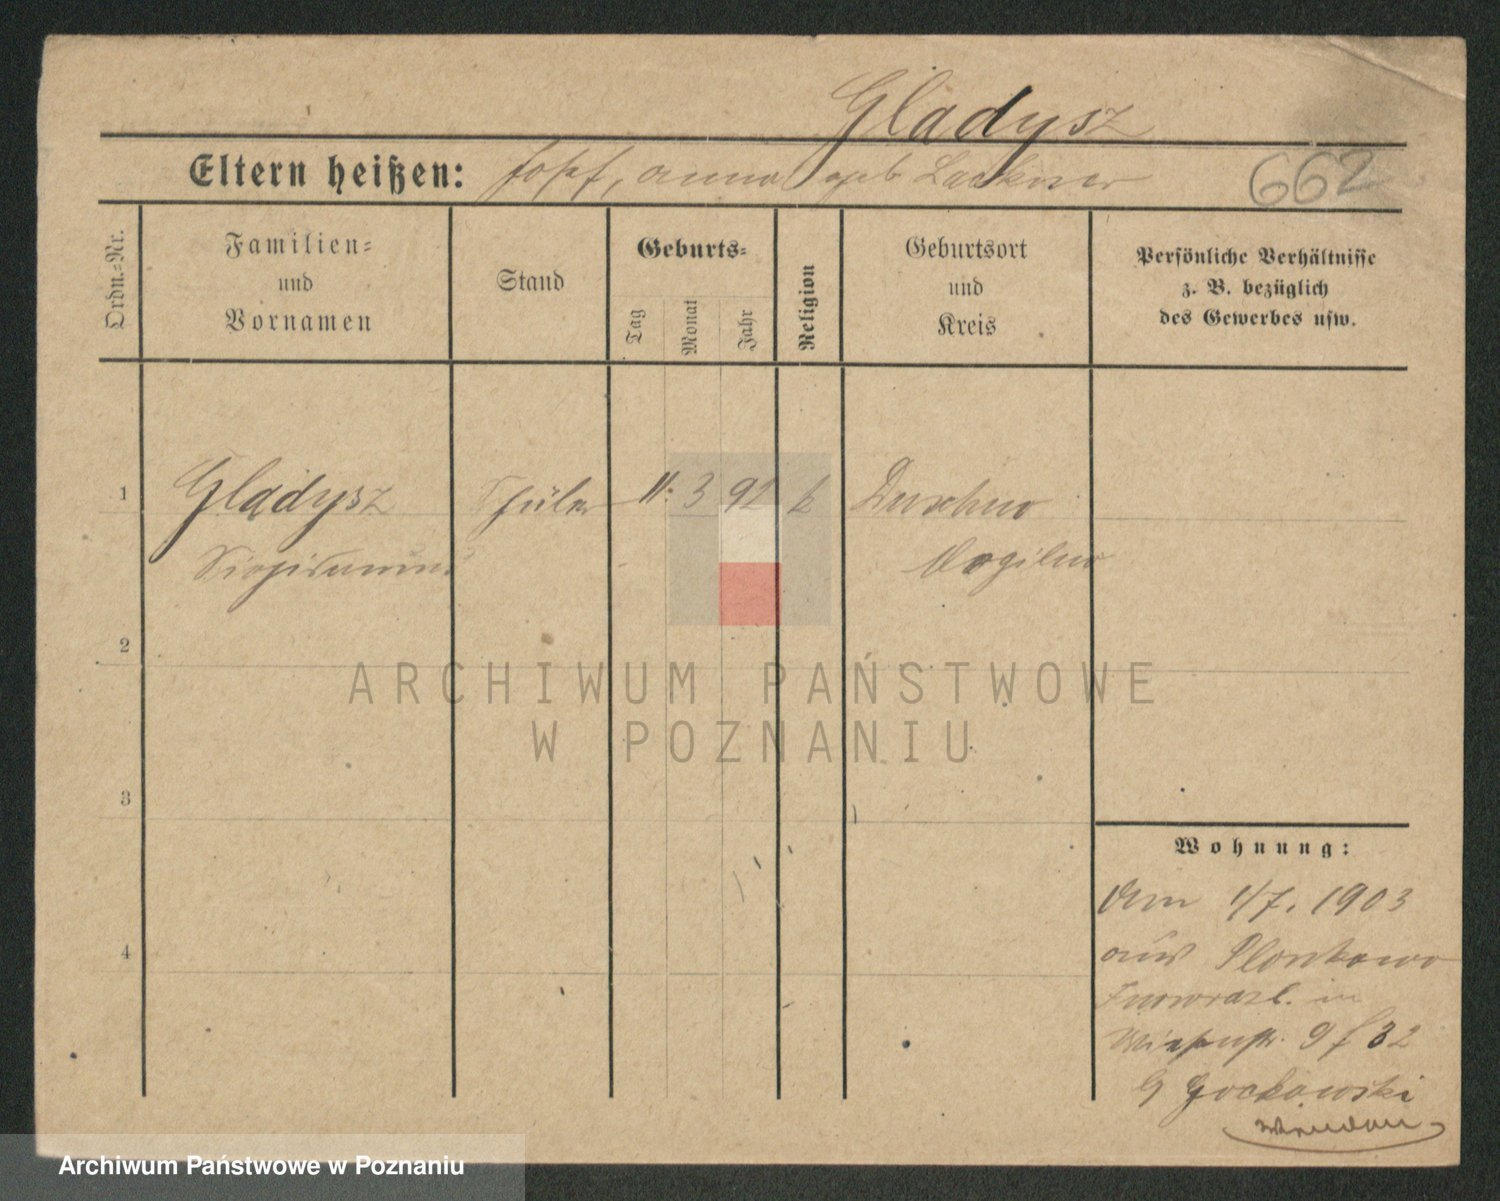 Gladysz
Eltern heißen: Josef, Anna geb
662
Ordn.=Nr.
Familien=
und
Vornamen
Stand
Geburts=
Tag
Monat
Jahr
Religion
Geburtsort
und
Kreis
Persönliche Verhältnisse
z. B. bezüglich
des Gewerbes usw.
1
Gladysz
Schüler
11. 3 92
k
Duschno
Sigismund
Mogilno
2
ARCHIWUM PAŃSTWOWE
W POZNANIU
3
Wohnung:
Am 1/7. 1903
4
aus Plonkowo
Inowrazl. in
Wiesenstr. 9
Archiwum Państwowe w Poznaniu